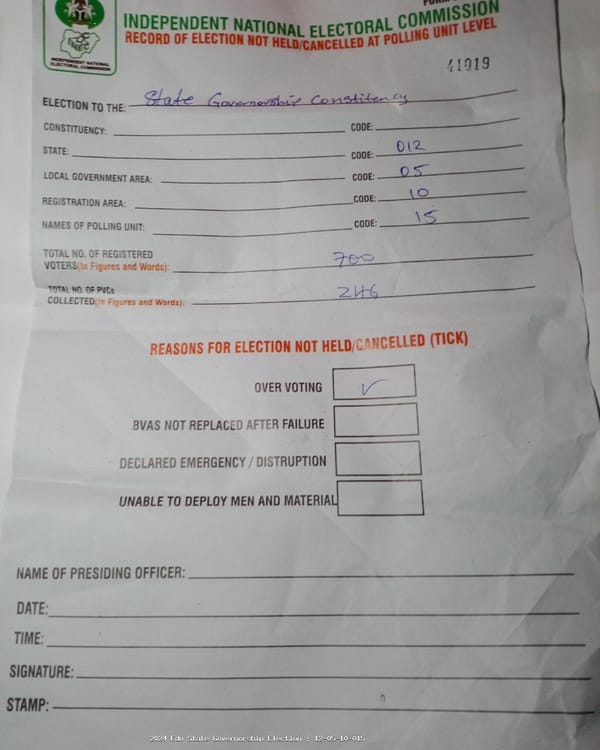 INEC
INDEPENDENT NATIONAL
ELECTORAL COMMISSION
INDEPENDENT NATIONAL ELECTORAL COMMISSION
RECORD OF ELECTION NOT HELD/CANCELLED AT POLLING UNIT LEVEL
41019
ELECTION TO THE: State Governorship Constitency
CONSTITUENCY: CODE:
STATE: CODE: 012
LOCAL GOVERNMENT AREA: CODE: 05
REGISTRATION AREA: CODE: 10
NAMES OF POLLING UNIT: CODE: 15
TOTAL NO. OF REGISTERED
VOTERS(In Figures and Words): 700
TOTAL NO. OF PVCs
COLLECTED(In Figures and Words): 246
REASONS FOR ELECTION NOT HELD/CANCELLED (TICK)
OVER VOTING ✓
BVAS NOT REPLACED AFTER FAILURE
DECLARED EMERGENCY / DISTRUPTION
UNABLE TO DEPLOY MEN AND MATERIAL
NAME OF PRESIDING OFFICER:
DATE:
TIME:
SIGNATURE:
STAMP:
2024 Edo State Governorship Election : 12-05-10-015